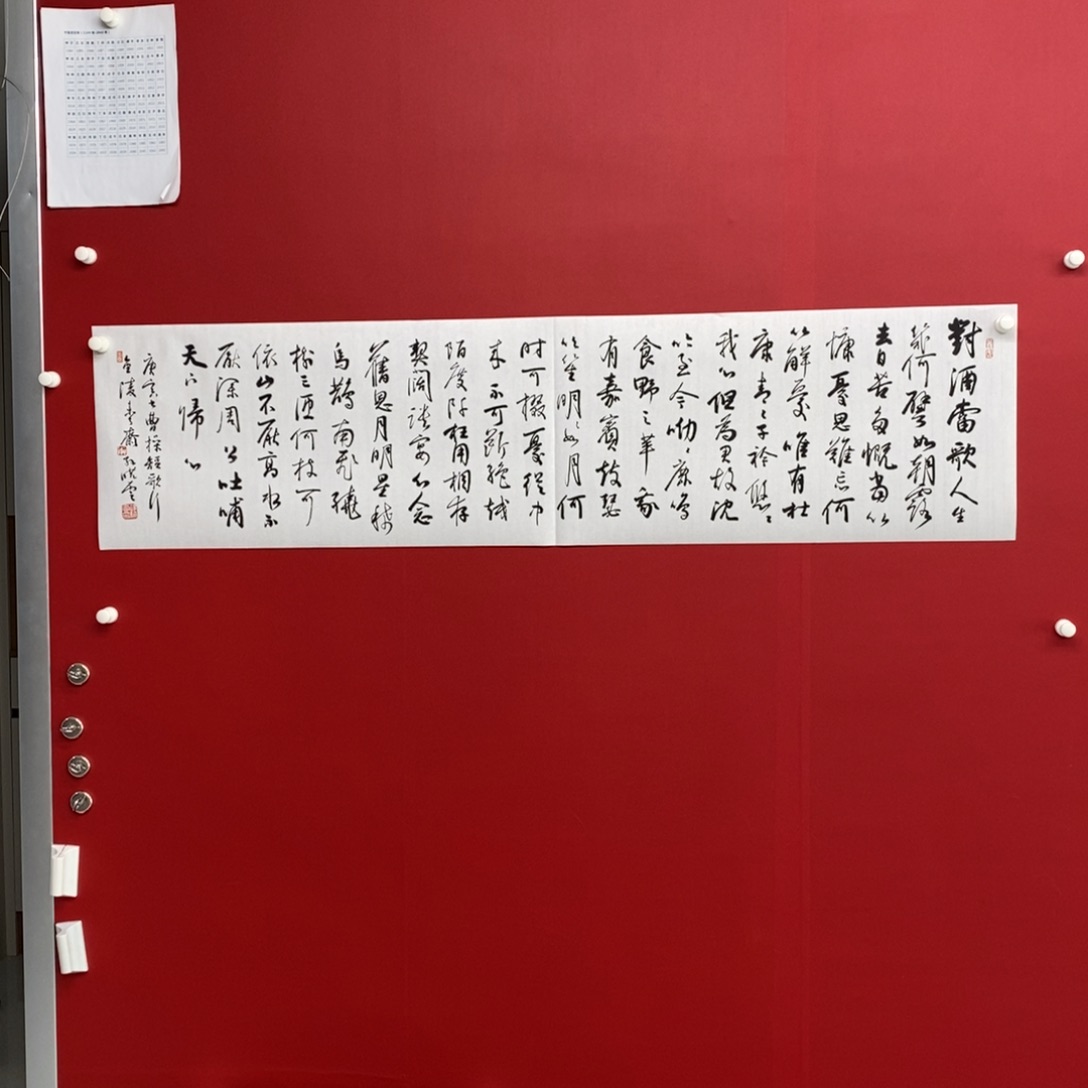 對酒當歌人生
幾何譬如朝露
去日苦多慨當以
慷憂思難忘何
以解憂唯有杜
康青々子衿悠々
我心但為君故沈
吟至今呦々鹿鳴
食野之苹我
有嘉賓鼓瑟
吹笙明々如月何
时可掇憂從中
来不可斷絶越
陌度阡枉用相存
契闊談宴心念
舊恩月明星稀
烏鵲南飛繞
樹三匝何枝可
依山不厭高水不
厭深周公吐哺
天下歸心
庚寅曹操短歌行
金陵齋